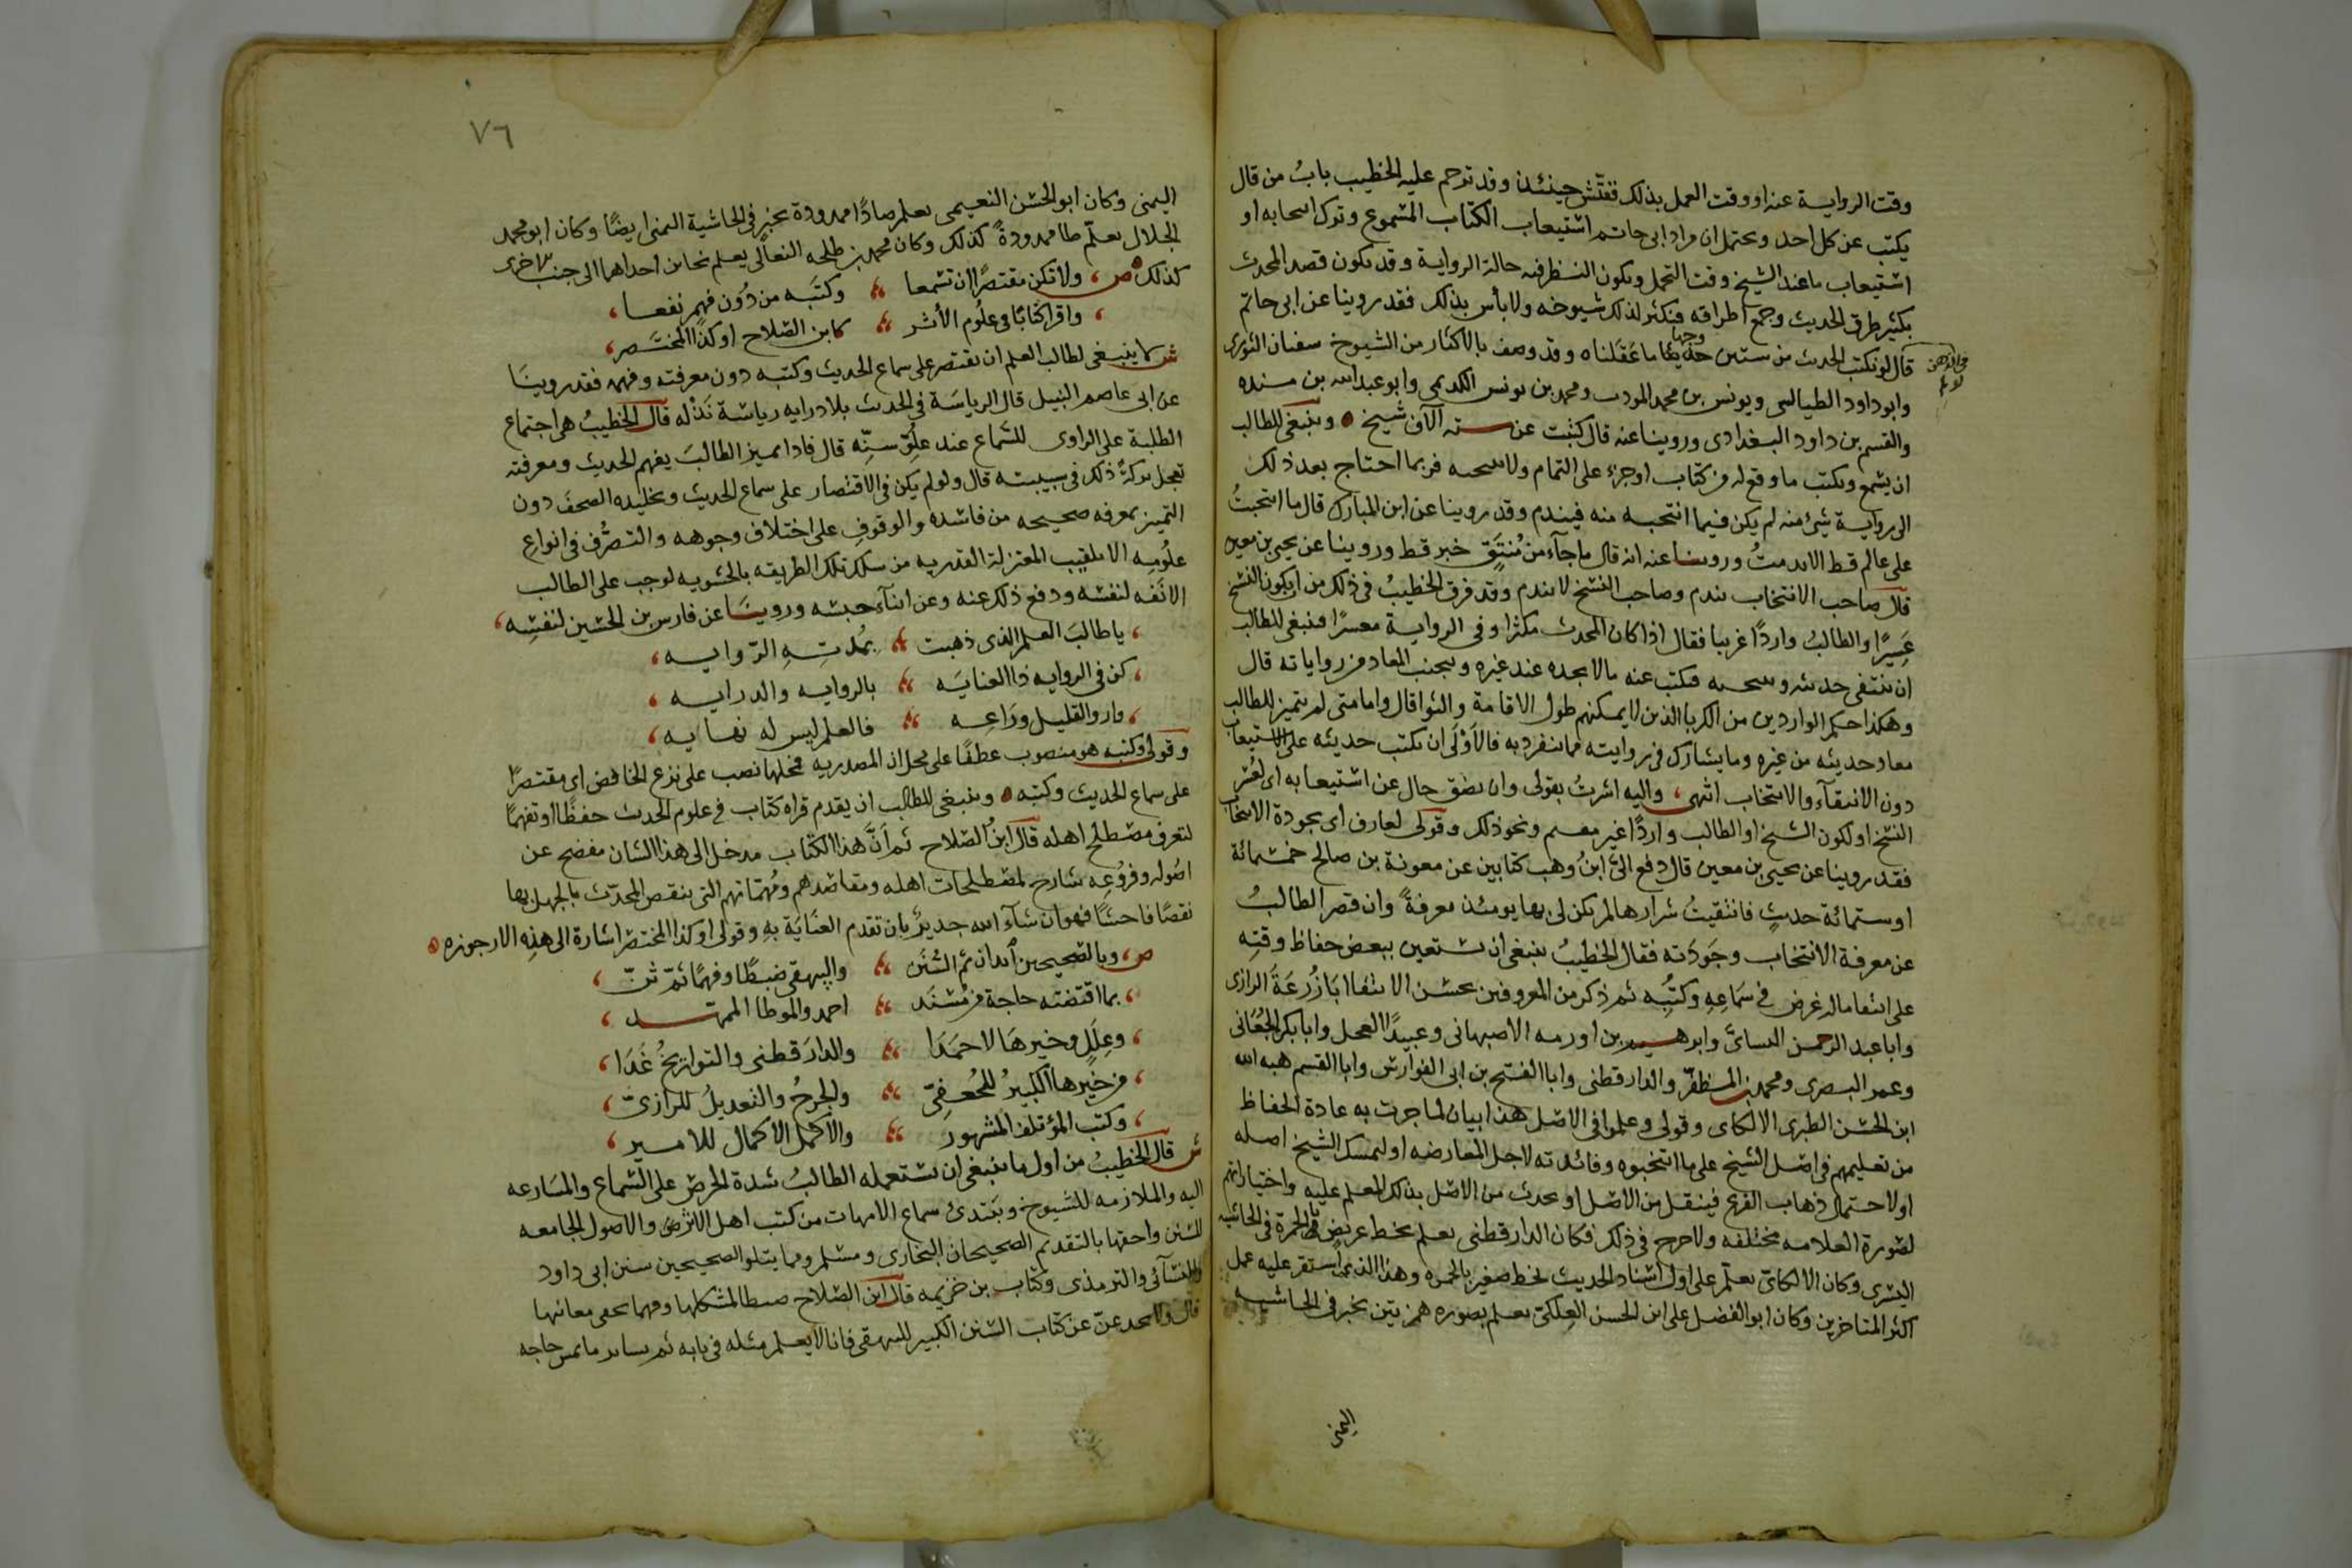 وقت الرواية عنه او وقت العمل بذلك ففتّش حينئذ وقد ترجم عليه الخطيب بابُ من قال
يكتب عن كل احد ويحتمل ان مراد ابى حاتم استيعاب الكتاب المسموع وترك انتخابه او
استيعاب ما عند الشيخ وقت التحمل ويكون النظر فيه حالة الرواية وقد يكون قصد المحدث
بكثير طرق الحديث وجمع اطرافه فيكثر لذلك شيوخه ولا بأس بذلك فقد روينا عن ابى حاتم
قال لو لم نكتب الحديث من ستين وجها ما عقلناه وقد وصف بالاكثار من الشيوخ سفيان الثورى
وابو داود الطيالسى ويونس بن محمد المودب ومحمد بن يونس الكديمى وابو عبد الله بن منده
والقسم بن داود البغدادى وروينا عنه قال كتبت عن ستة آلاف شيخ وينبغى للطالب
ان يسمع ويكتب ما وقع له من كتاب او جزء على التمام ولا ينتخبه فربما احتاج بعد ذلك
الى رواية شئ منه لم يكن فيما انتخبه منه فيندم وقد روينا عن ابن المبارك قال ما انتخبتُ
على عالم قط الا ندمتُ وروينا عنه انه قال ما جآء من مُنتقٍ خبر قط وروينا عن يحيى بن معين
قال صاحب الانتخاب يندم وصاحب النسخ لا يندم وقد فرق الخطيبُ فى ذلك من ان يكون الشيخ
عَسِرًا والطالبُ واردًا غريبا فقال اذا كان المحدث مكثرا وفى الرواية معسرًا فينبغى للطالب
ان ينتقى حديثه وينتخبه فيكتب عنه ما لا يجده عند غيره ويجنب المعاد من رواياته قال
وهكذا حكم الواردين من الغربا الذين لا يمكنهم طول الاقامة والثوا قال واما متى لم يتميز للطالب
معاد حديثه من غيره وما يشارك فى روايته مما يتفرد به فالاَوْلَى ان يكتب حديثه على الاستيعاب
دون الانتقآء والانتخاب انتهى واليه اشرتُ بقولى وان يضق حال عن استيعابه اى لعُسر
الشيخ او لكون الشيخ او الطالب واردًا غير مقيم ونحو ذلك وقولى لعارف اى بجودة الانتخاب
فقد روينا عن يحيى بن معين قال دفع الىَّ ابنُ وهب كتابين عن معوية بن صالح خمسمائة
او ستمائة حديثٍ فانتقيتُ شرارها لم يكن لى بها يومئذ معرفةً وان قصر الطالبُ
عن معرفة الانتخاب وجَودَته فقال الخطيبُ ينبغى ان يستعين ببعض حفاظ وقتِه
على انتقا ماله غرض فى سَمَاعِهِ وكَتْبِه ثم ذكر من المعروفين بحسن الانتقا ابَازُرعَةَ الرازى
وابا عبد الرحمن النسائىَّ وابرهيم بن اورمه الاصبهانى وعبيدًا العجل وابا بكر الجُعَانى
وعمر البصرى ومحمد بن المظفّر والدارقطنى وابا الفتح بن ابى الفوارس وابا القسم هبه الله
ابن الحسن الطبرى الالكاى وقولى وعلموا فى الاصل هذا بيان لما جرت به عادة الحفاظ
من تعليمهم فى اصل الشيخ على ما انتخبوه وفائدته لاجل المعارضه او ليمسك الشيخ اصله
او لاحتمال ذهاب الفرع فينقل من الاصل او يحدث من الاصل بذلك المعلم عليه واختياراتهم
لصورة العلامه مختلفه ولا حرج فى ذلك فكان الدارقطنى يعلم بخط عريض بالحمرة فى الحاشيه
اليسرى وكان الالكائى يعلّم على اول اسناد الحديث لخط صغير بالحمره وهذا الذى استقر عليه عمل
اكثر المتاخرين وكان ابو الفضل على ابن الحسن الفلكىّ يعلم بصوره همزتين بحبر فى الحاشيه
اليمنى
٧٦
اليمنى وكان ابو الحسن النعيمى يعلم صادًا ممدودة بحبر فى الحاشية اليمنى ايضًا وكان ابو محمد
الخلال يعلّم طا ممدودةً كذلك وكان محمد بن طلحه النعالى يعلم بحاين احداهما الى جنب الاخرى
كذلك ص ولا تكن مقتصرًا ان تسمعا وكتبَه من دُون فهم نفعا
واقرا كتابًا فى علُوم الأثر كابن الصّلاح او كذا المختصر
ش لا ينبغى لطالب العلم ان يقتصر على سماع الحديث وكتبه دون معرفته وفهمه فقد روينَا
عن ابى عاصم النبيل قال الرياسَة فى الحديث بلا درايه رياسَة نَذْله قال الخطيبُ هى اجتماع
الطلبة على الراوى للسّماع عند علُوّ سنّه قال فاذا تميز الطالبَ بفهم الحديث ومعرفته
تعجل بركةَ ذلك فى شبيبته قال ولو لم يكن فى الاقتصار على سماع الحديث وتخليده الصحفَ دون
التمييز بمعرفه صحيحه من فاسده والوقوفِ على اختلاف وجوهه والتصرُّف فى انواعِ
علُومِه الا تلقيب المعتزلة القدريه من سلك تلك الطريقه بالحشويه لوجب على الطالب
الانَفَه لنفسه ودفع ذلك عنه وعن ابنآء جنسه وروينَا عن فارس بن الحسين لنفسِه
يا طالبَ العلم الذى ذهبت بمُدتِهِ الرّوايه
كن فى الروايه ذا العنايَه بالروايه والدرايه
وارو القليل ورَاعِه فالعلم ليس له نهايه
وقولى وكتبه هو منصوب عطفًا على محل ان المصدريه فمحلها نصب على نزع الخافض اى مقتصرًا
على سماع الحديث وكتبه وينبغى للطالب ان يقدم قراه كتاب فى علوم الحديث حفظًا او تفهمًا
لتعرف مصطلح اهله قال ابنُ الصّلاح ثم انَّ هذا الكتاب مدخل الى هذا الشان مفصح عن
اصُوله وفروُعِه شارح لمصطلحات اهله ومقاصدهم ومُهمّاتهم التى ينقص المحدّث بالجهل بها
نقصًا فاحشًا فهو ان شآء الله جديرٌ بان تقدم العنَايَة بهِ وقولى او كذا المختصر اشارة الى هذِه الارجوزه
ص وبالصّحيحين ابدان ثم السُّنن والبيهقى ضبطًا وفهمًا ثمّ ثنّ
بما اقتضته حاجة من مُسْنَد احمد والموطا الممهّد
وعِلَلٍ وخيرهَا لاحمَدَا والدارَقطنى والتواريخُ غَدَا
من خَيرها الكبيرُ للجُعفِىّ والجرحُ والتعديلُ للرازىّ
وكتب المؤتلف المشهور والاكمل الاكمال للامير
ش قال الخطيبُ من اول ما ينبغى ان يستعمله الطالبُ شدة الحرص على السّماع والمسَارعه
اليه والملازمه للشيوخ ويبتدئ سماع الامهات من كتب اهل الاثر والاصول الجامعه
للسُّنن واحقها بالتقديم الصحيحان البخارى ومسلم ومما يتلوا الصحيحين سنن ابى داود
والنسآئى والترمذى وكتاب بن خزيمه قال ابن الصّلاح ضبطا لمشكلها وفهما لخفى معانيها
قال ولا يخدعنّ عن كتاب السّنن الكبير للبيهقى فانا لا نعلم مثله فى بابه ثم بسائر ما تمس حاجه